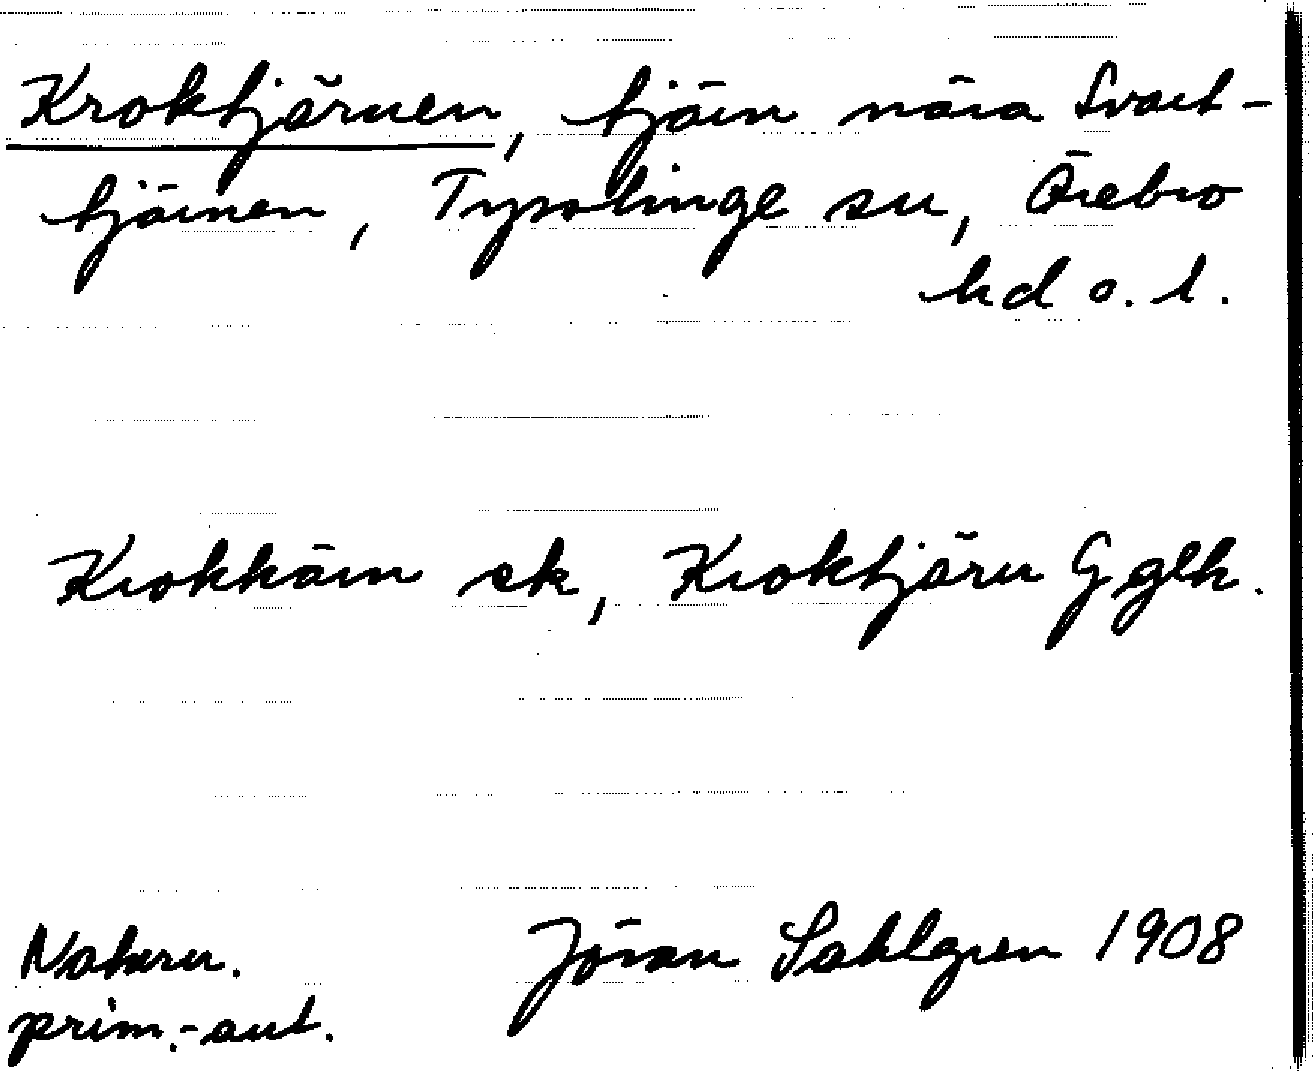 Kroktjärnen, tjärn nära Svart-
tjärnen, Tysslinge sn, Örebro
hd o. l.
Krokkärn ek, Kroktjärn Gglk.
Naturn.
prim.-aut.
Jöran Sahlgren 1908